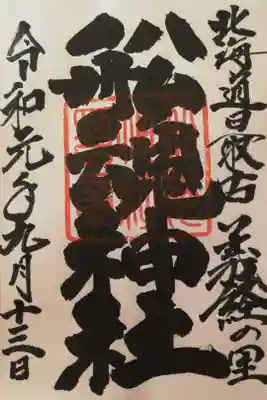 北海道最古 義経の里
舩魂神社
令和元年九月十三日